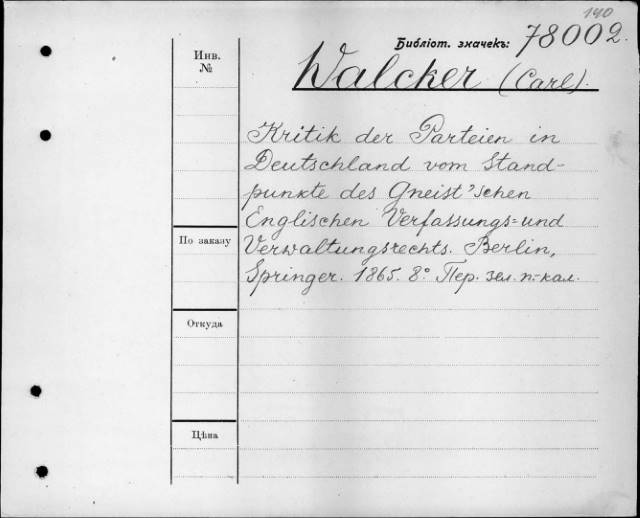 140
Библіот. значекъ: 78002.
Инв.
№
Walcker (Carl).
Kritik der Parteien in
Deutschland vom Stand-
punkte des Gneist'schen
Englischen Verfassungs= und
Verwaltungsrechts. Berlin,
Springer. 1865. 8° Пер. зел. п.-кал.
По заказу
Откуда
Цѣна